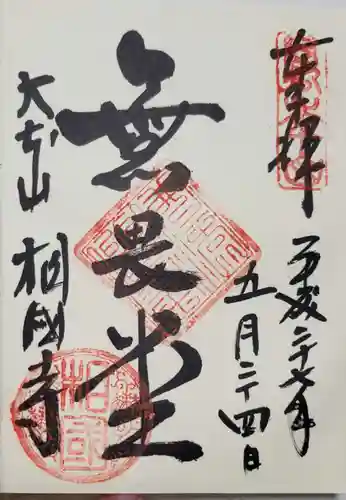 奉拝
平成二十七年
五月二十四日
無畏堂
大本山
相國寺